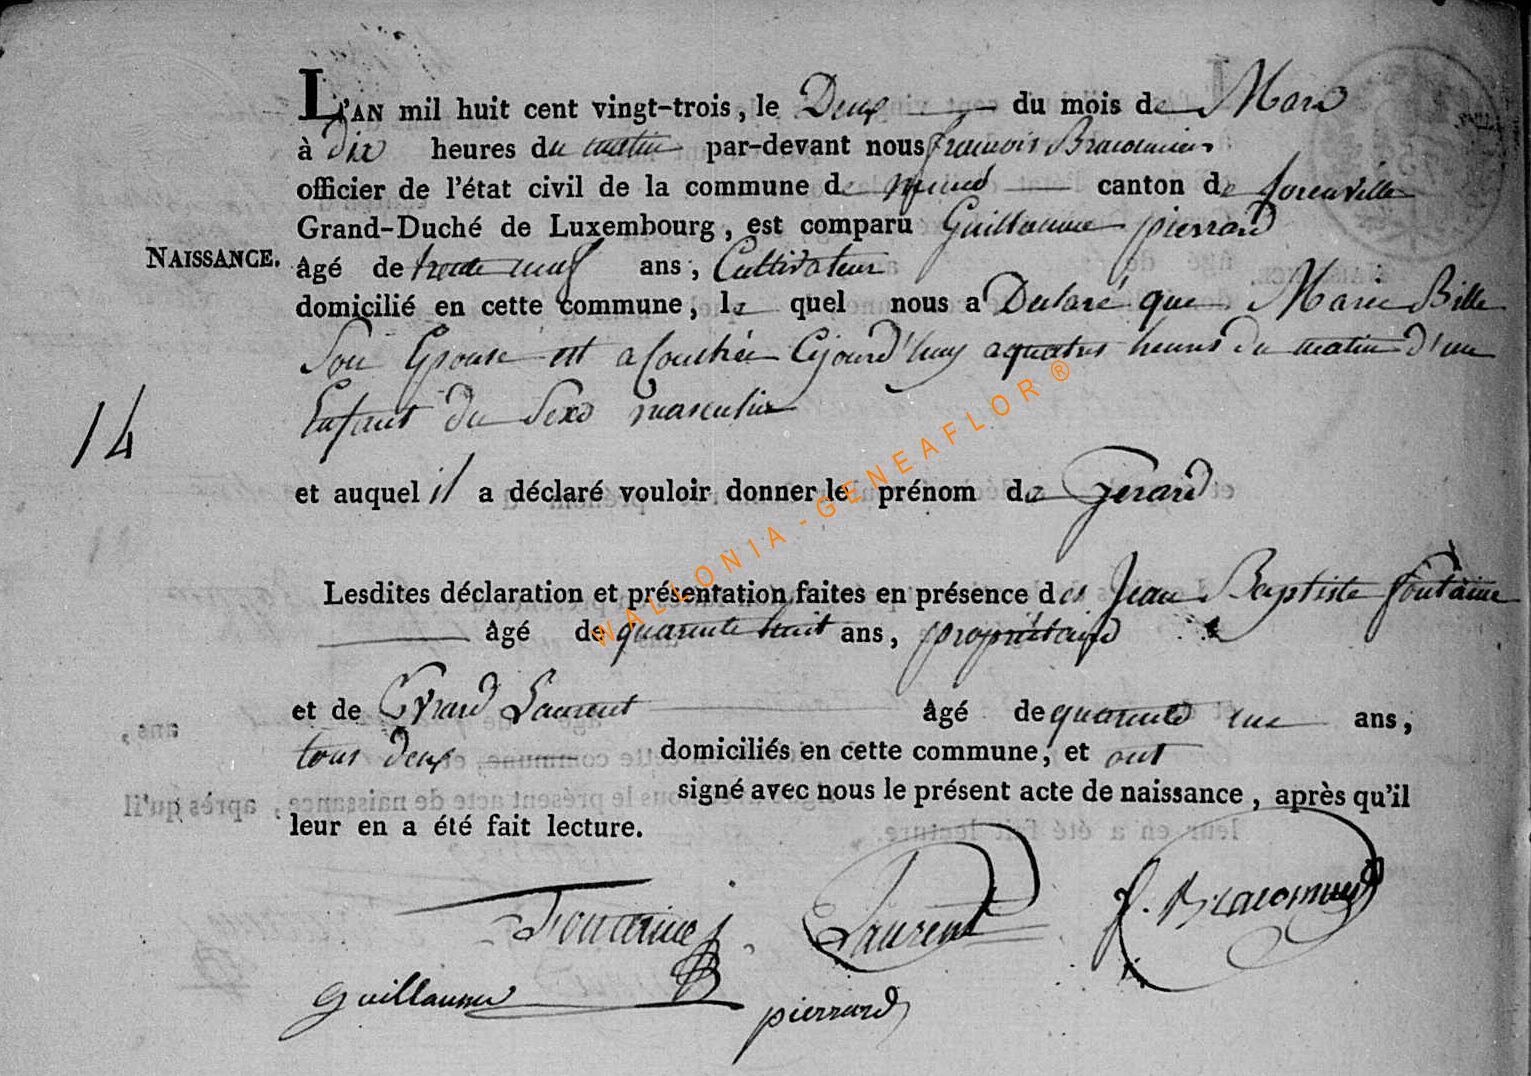 L'AN mil huit cent vingt-trois, le Deux du mois de Mars
à dix heures du matin par-devant nous françois Braconnier
officier de l'état civil de la commune de canton de florenville
Grand-Duché de Luxembourg, est comparu Guillaume pierrard
NAISSANCE. âgé de trente neuf ans, Cultivateur
domicilié en cette commune, le quel nous a Declaré que Marie Bille
Son Epouse est acouchée Cejourd'huy a quatres heures du matin d'un
Enfant du Sexe masculin
14
et auquel il a déclaré vouloir donner le prénom de Gerard
Lesdites déclaration et présentation faites en présence des Jean Baptiste fontaine
âgé de quarante huit ans, propriétaire
et de Evrard Laurent âgé de quarante un ans,
tous deux domiciliés en cette commune, et ont
signé avec nous le présent acte de naissance, après qu'il
leur en a été fait lecture.
Fontaine Laurent f. Braconnier
guillaume pierrard
WALLONIA-GENEAFLOR®